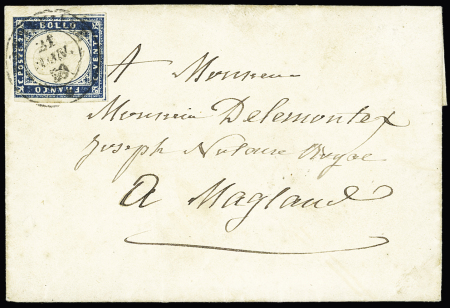 C. POSTE 20
BOLLO
C. VENTI
FRANCO
21
59
A Monsieur
Monsieur Delemontex
Joseph Notaire Royal
A Magland